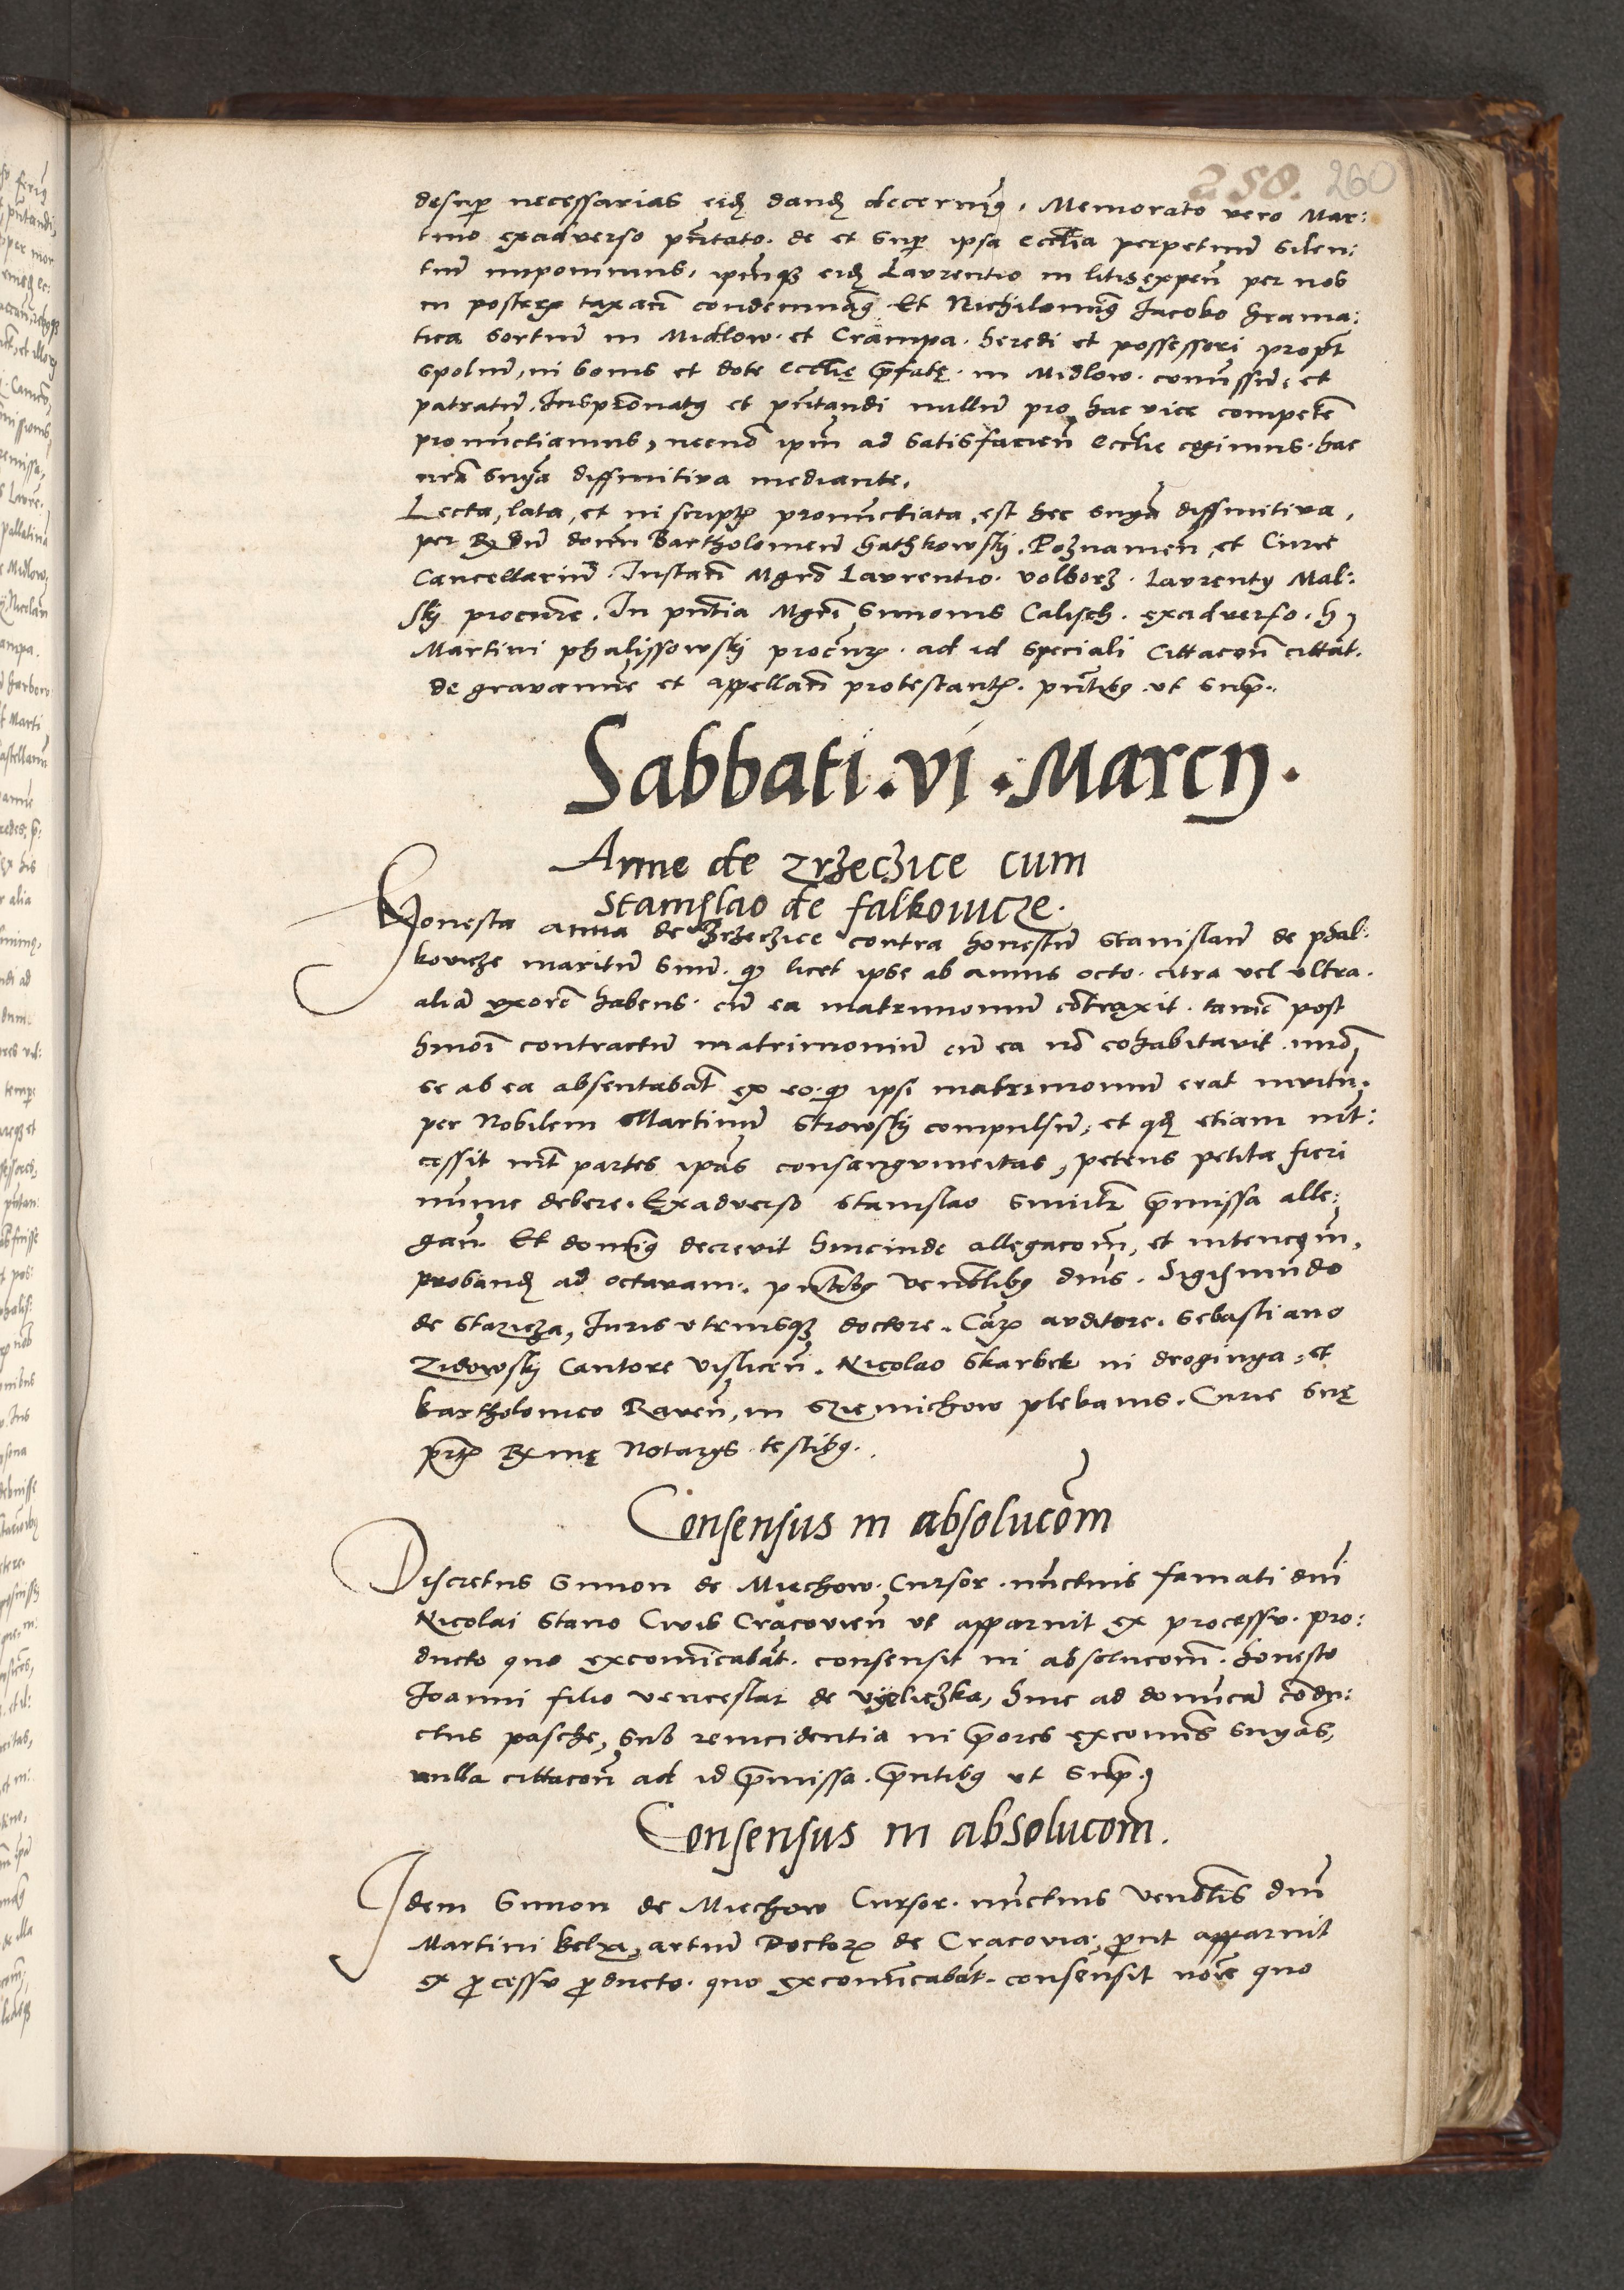 258. 260
desup necessarias eid dand decernimg. Memorato vero Mar:
tino exadverso pntato. de et sup ipsa ecclia perpetuum silen:
tium imponimus, ipmqz eid Laurentio in litis expen per nos
in posterum taxan condemnamg Et Nichilomig Jacobo grama:
tica sortium in Midlow. et Crampa. heredi et possessori propt
spolium, in bonis et dote ecclię pfatę. in Midlow. comissum, et
patratum. Juspronatg et pntandi nullum pro hac vice competem
pronunctiamus, necno ipm ad satisfacien Ecclie cogimus. hac
nra snia diffinitiva mediante.
Lecta, lata, et in script pronunctiata, est hec snia diffinitiva,
per R dum domn Bartholomeum Gathkowskÿ. Poznamen, et Curie
Cancellarium. Instan Mgro Laurentio. volborz. Laurenty Mal:
skÿ procure. In pntia Mgri Simonis Calisch. exadverso. h
Martini phalissowskÿ procur. ad id speciali Cittacon cittat.
de gravamne et appellan protestant. pntibg ut sup.
Sabbati . vi . Marcij .
Anne de zrzeczice cum
Stanislao de falkowicze.
Honesta anna de Zrzeczice contra honestum Stanislaum de phal:
kovicze maritum suum. q licet ipse ab annis octo. citra vel ultra.
aliam uxorem habens. cum ea matrimonium contraxit. tamen post
hmoi contractum matrimonium cum ea no cohabitavit. imo
se ab ea absentabat ex eo. q ipse matrimonium erat invitu.
per Nobilem Martinum Strowskÿ compulsum, et qd etiam int:
cessit int partes ipas consanguineitas, petens petita fieri
numc debere. Exadverso Stanislao similr pmissa alle:
gan. Et domng decrevit hincinde allegacom, et intencom,
proband ad octavam. pntibg venblibg dnis. Sigismundo
de Stazicza, Juris utriusqz doctore. Car auditore. Sebastiano
Zidowskÿ Cantore vislicen. Nicolao Skarbek in droginya, et
bartholomeo Raven, in Sziemichow plebanis. Curie suę
prt Rmę Notarys testibg.
Consensus in absolucom
Discretus Simon de Miechow. Cursor. nunctius famati dni
Nicolai Stano Civis Cracovien ut apparuit ex processu. pro:
ducto quo excomicabat. consensit in absolucom. honesto
Joanni filio venceslai de vyeliczka, hinc ad domnicam condu:
ctus pasche, sub reincidentia in pores excomis snias,
nulla cittacon ad id pmissa. pntibg ut sup.
Consensus in absolucom.
Idem Simon de Miechow Cursor. nunctius venblis dni
Martini belza, artium Doctor de Cracovia, put apparuit
ex pcessu pducto. quo excomicabat. consensit noie quo